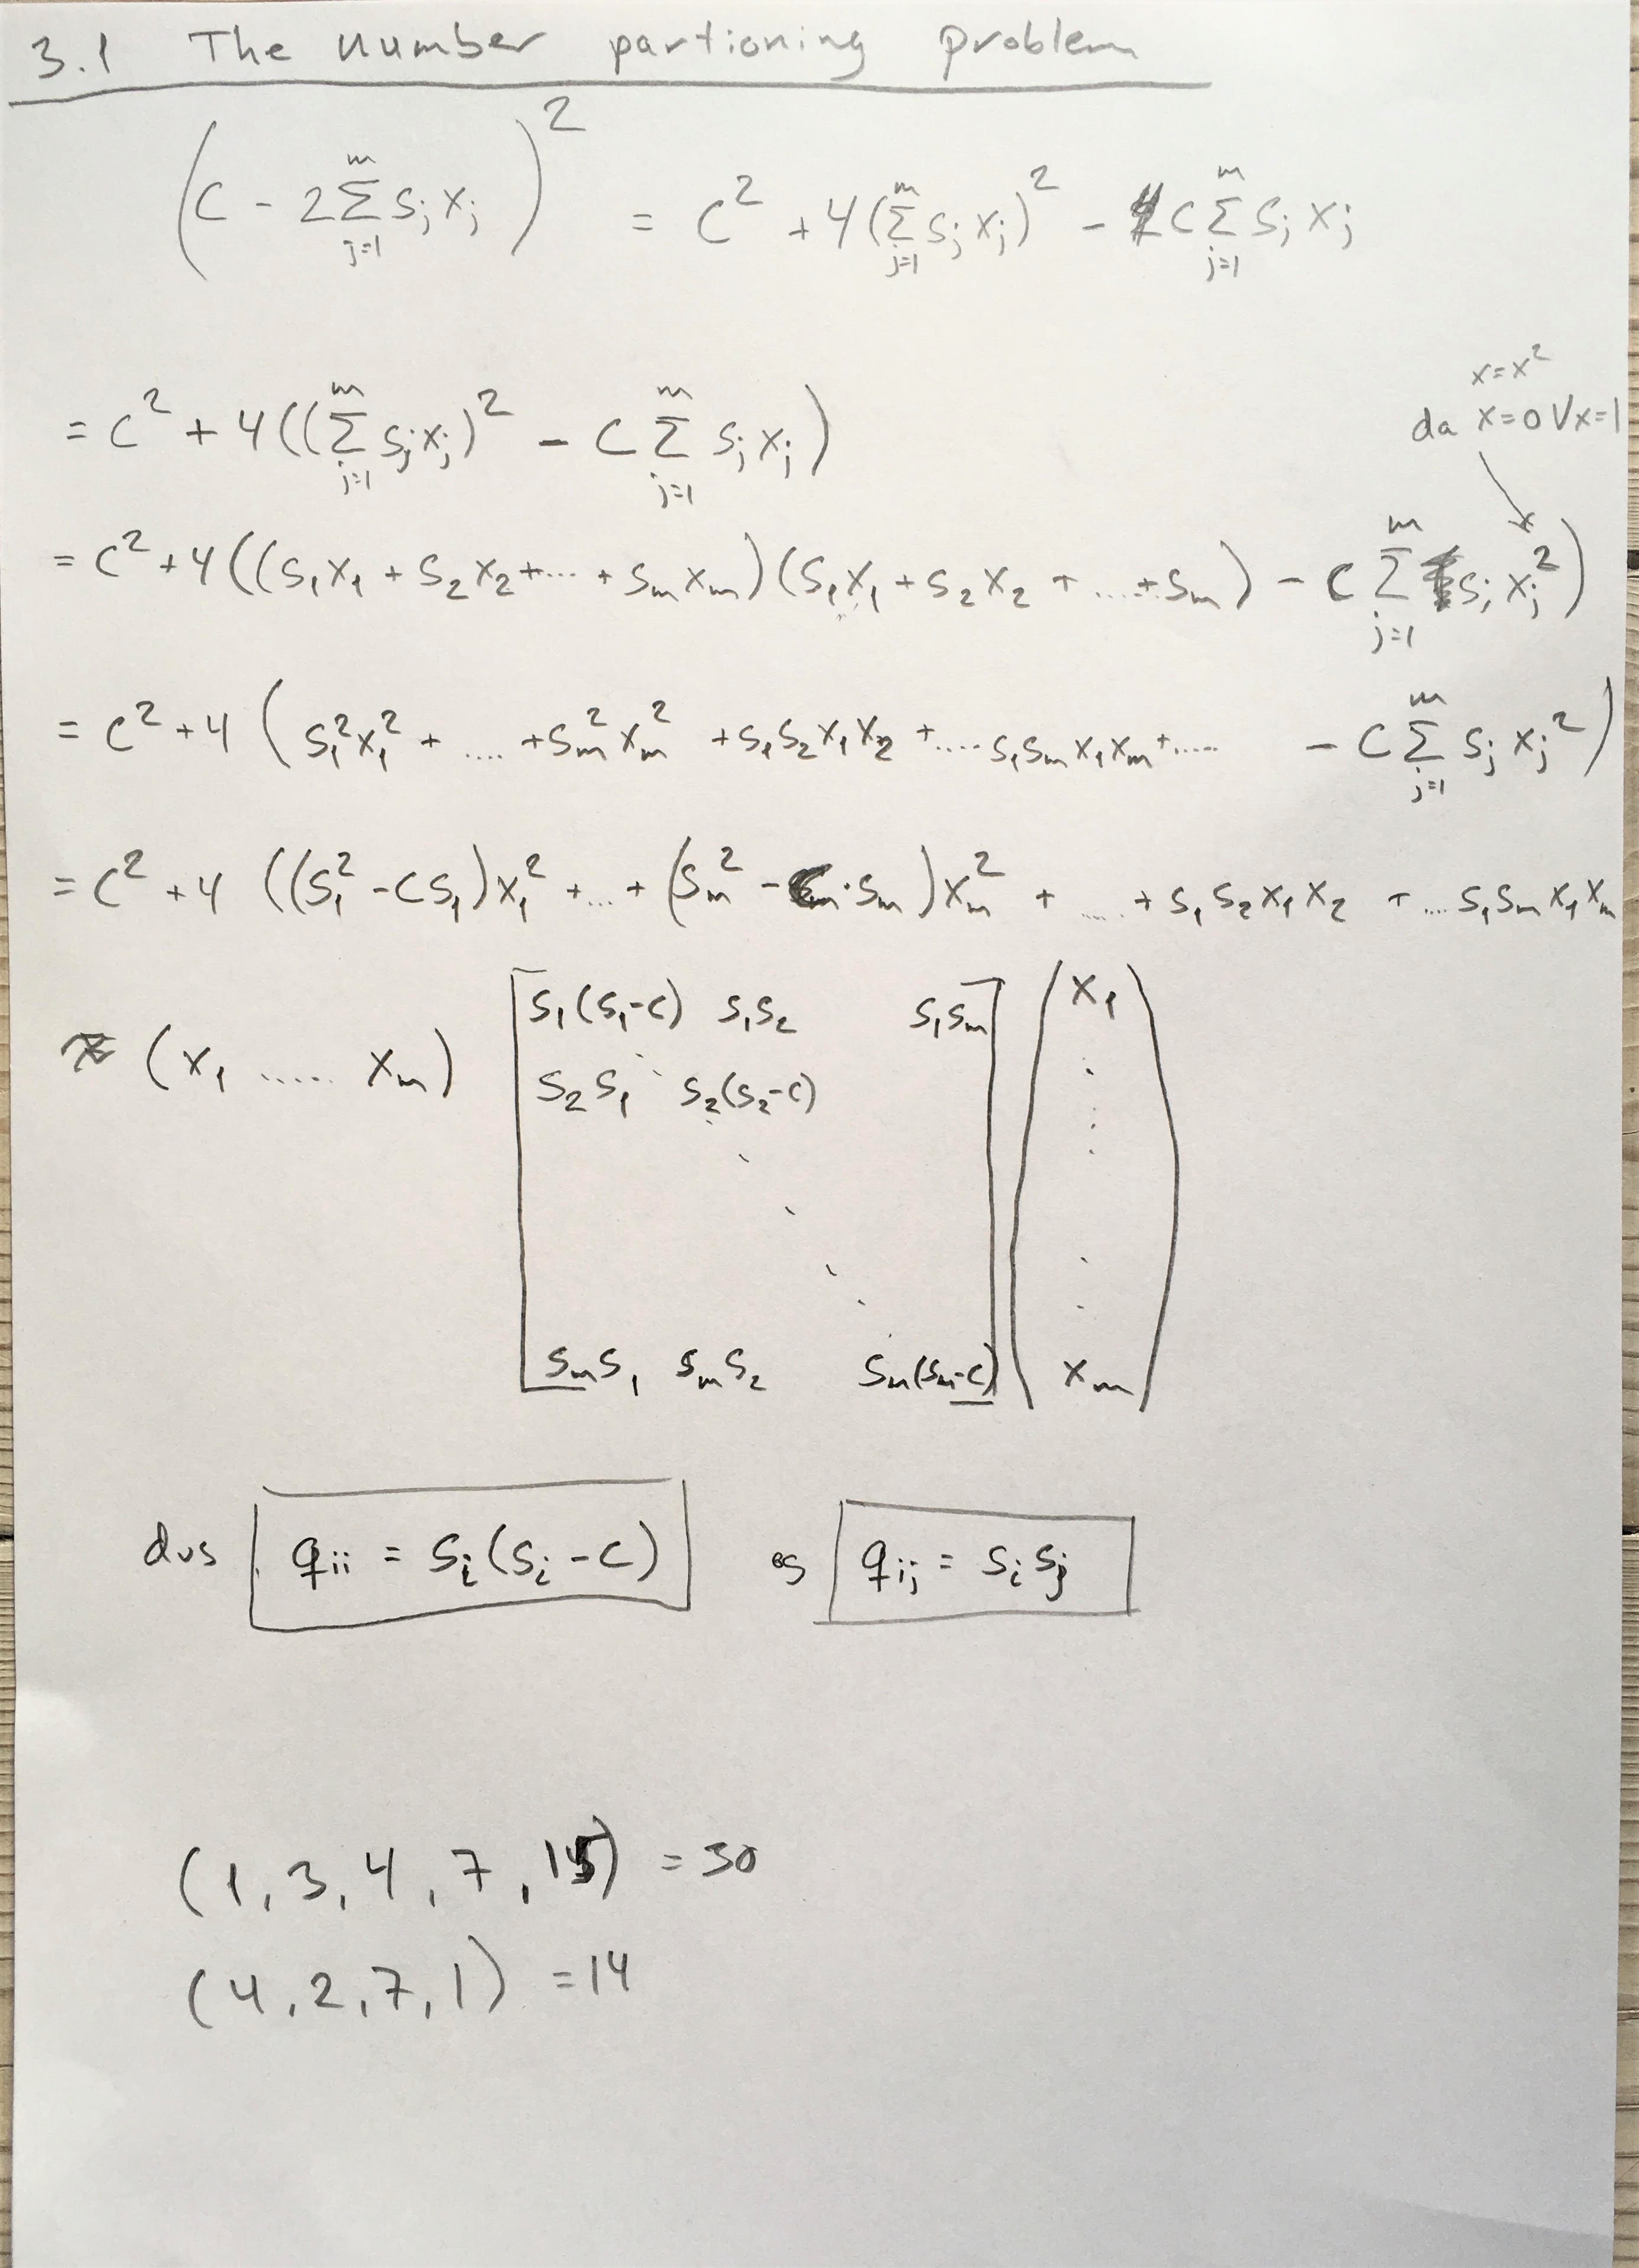 3.1 The number partioning problem
(c - 2 \sum_{j=1}^{m} s_j x_j)^2 = c^2 + 4(\sum_{j=1}^{m} s_j x_j)^2 - 4c \sum_{j=1}^{m} s_j x_j
x = x^2
= c^2 + 4((\sum_{j=1}^{m} s_j x_j)^2 - c \sum_{j=1}^{m} s_j x_j)
da x=0 ∨ x=1
= c^2 + 4((s_1x_1 + s_2x_2 + ... + s_m x_m)(s_1x_1 + s_2x_2 + ... + s_m) - c \sum_{j=1}^{m} s_j x_j^2)
= c^2 + 4(s_1^2x_1^2 + .... + s_m^2x_m^2 + s_1s_2x_1x_2 + .... s_1s_mx_1x_m + ..... - c \sum_{j=1}^{m} s_j x_j^2)
= c^2 + 4((s_1^2 - cs_1)x_1^2 + ... + (s_m^2 - c·s_m)x_m^2 + .... + s_1s_2x_1x_2 + ... s_1s_mx_1x_m
s_1(s_1-c) s_1s_2 s_1s_m x_1
(x_1 ..... x_m)
s_2s_1 s_2(s_2-c)
s_ms_1 s_ms_2 s_m(s_m-c) x_m
dus q_{ii} = s_i(s_i-c) og q_{ij} = s_i s_j
(1, 3, 4, 7, 15) = 30
(4, 2, 7, 1) = 14